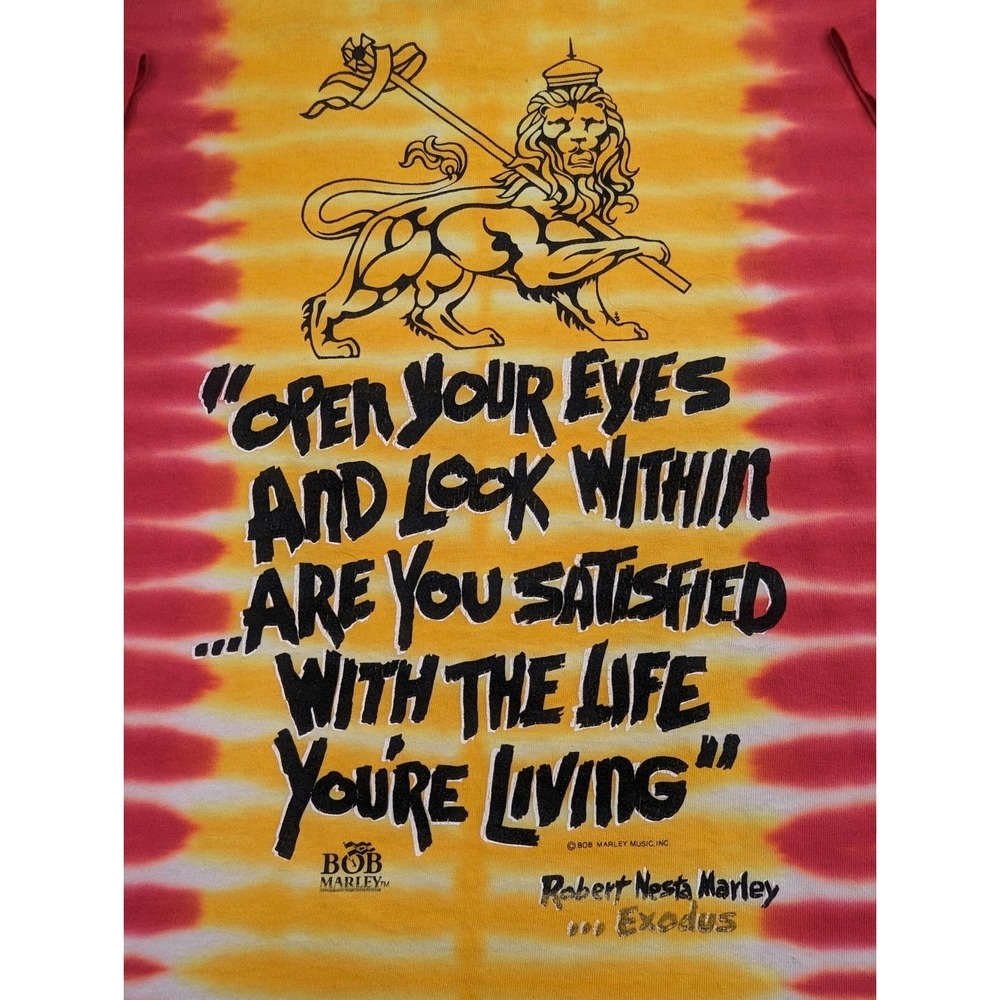 "OPEN YOUR EYES
AND LOOK WITHIN
...ARE YOU SATISFIED
WITH THE LIFE
YOU'RE LIVING"
© BOB MARLEY MUSIC, INC.
BOB
MARLEY™
Robert Nesta Marley
... Exodus